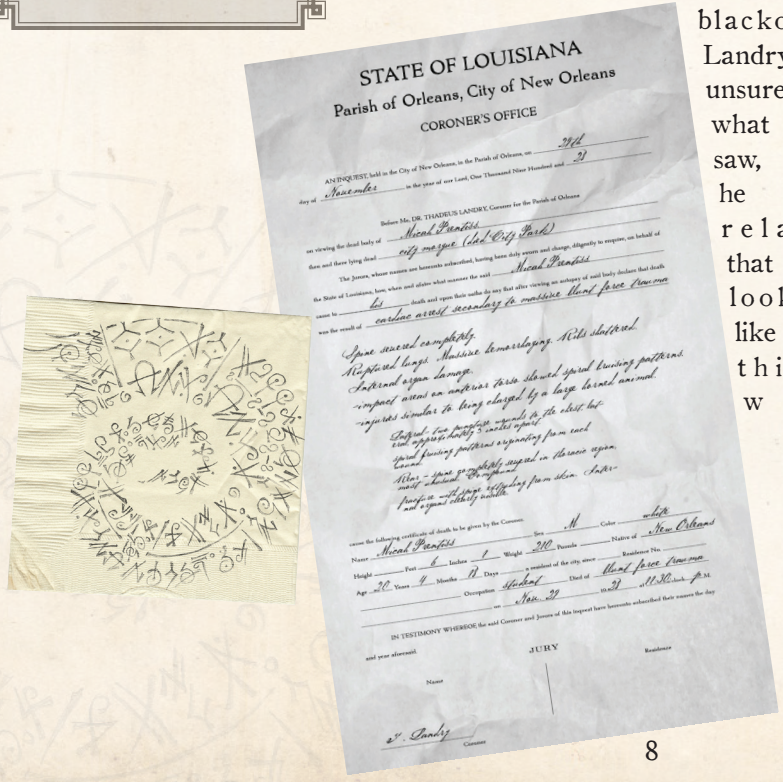 STATE OF LOUISIANA
Parish of Orleans, City of New Orleans
CORONER'S OFFICE
AN INQUEST, held in the City of New Orleans, in the Parish of Orleans, on 29th
day of November in the year of our Lord, One Thousand Nine Hundred and 28
Before Me, DR. THADEUS LANDRY, Coroner for the Parish of Orleans
on viewing the dead body of Micah Prentiss
then and there lying dead city morgue (died City Park)
The Jurors, whose names are hereunto subscribed, having been duly sworn and charge, diligently to enquire, on behalf of
the State of Louisiana, how, when and where what manner the said Micah Prentiss
came to his death and upon their oaths do say that after viewing an autopsy of said body declare that death
was the result of cardiac arrest secondary to massive blunt force trauma
Spine severed completely.
Ruptured lungs. Massive hemorrhaging. Ribs shattered.
Internal organ damage.
-impact areas on anterior torso showed spiral bruising patterns.
-injuries similar to being charged by a large horned animal.
two puncture wounds to the chest, lat-
eral, approximately 3 inches apart.
spiral bruising patterns originating from each
wound.
Rear - spine completely severed in thoracic region.
most unusual. Compound
fracture with spine extending from skin. Inter-
nal organs clearly visible.
cause the following certificate of death to be given by the Coroner.
Name Micah Prentiss Sex M Color white
Height Feet 6 Inches 1 Weight 210 Pounds Native of New Orleans
Age 20 Years 4 Months 18 Days a resident of the city, since Residence No.
Occupation student Died of blunt force trauma
on Nov. 29 28 11:30 o'clock P.M.
IN TESTIMONY WHEREOF, the said Coroner and Jurors of this inquest have hereunto subscribed their names the day
and year aforesaid.
JURY
Name Residence
T. Landry
Coroner
blacko
Landry
unsure
what
saw,
he
rela
that
look
like
thi
w
8